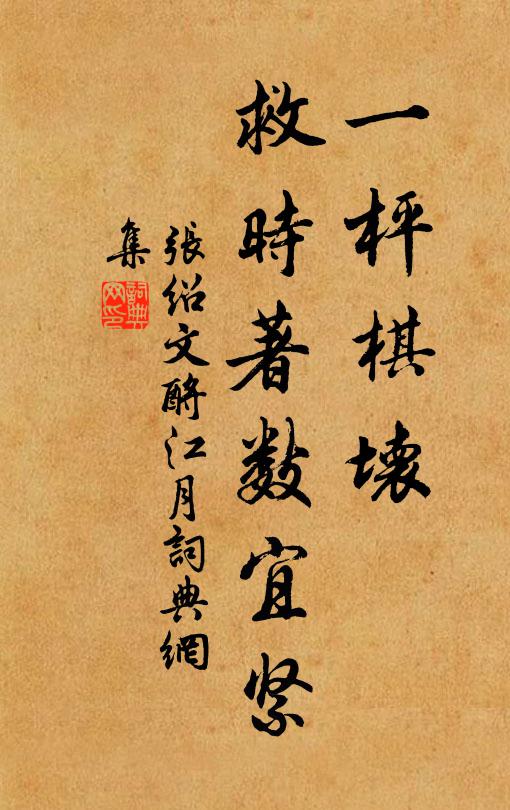 一枰棋壞
救時著数宜紧
張绍文酹江月詞典網
集
詞典網印